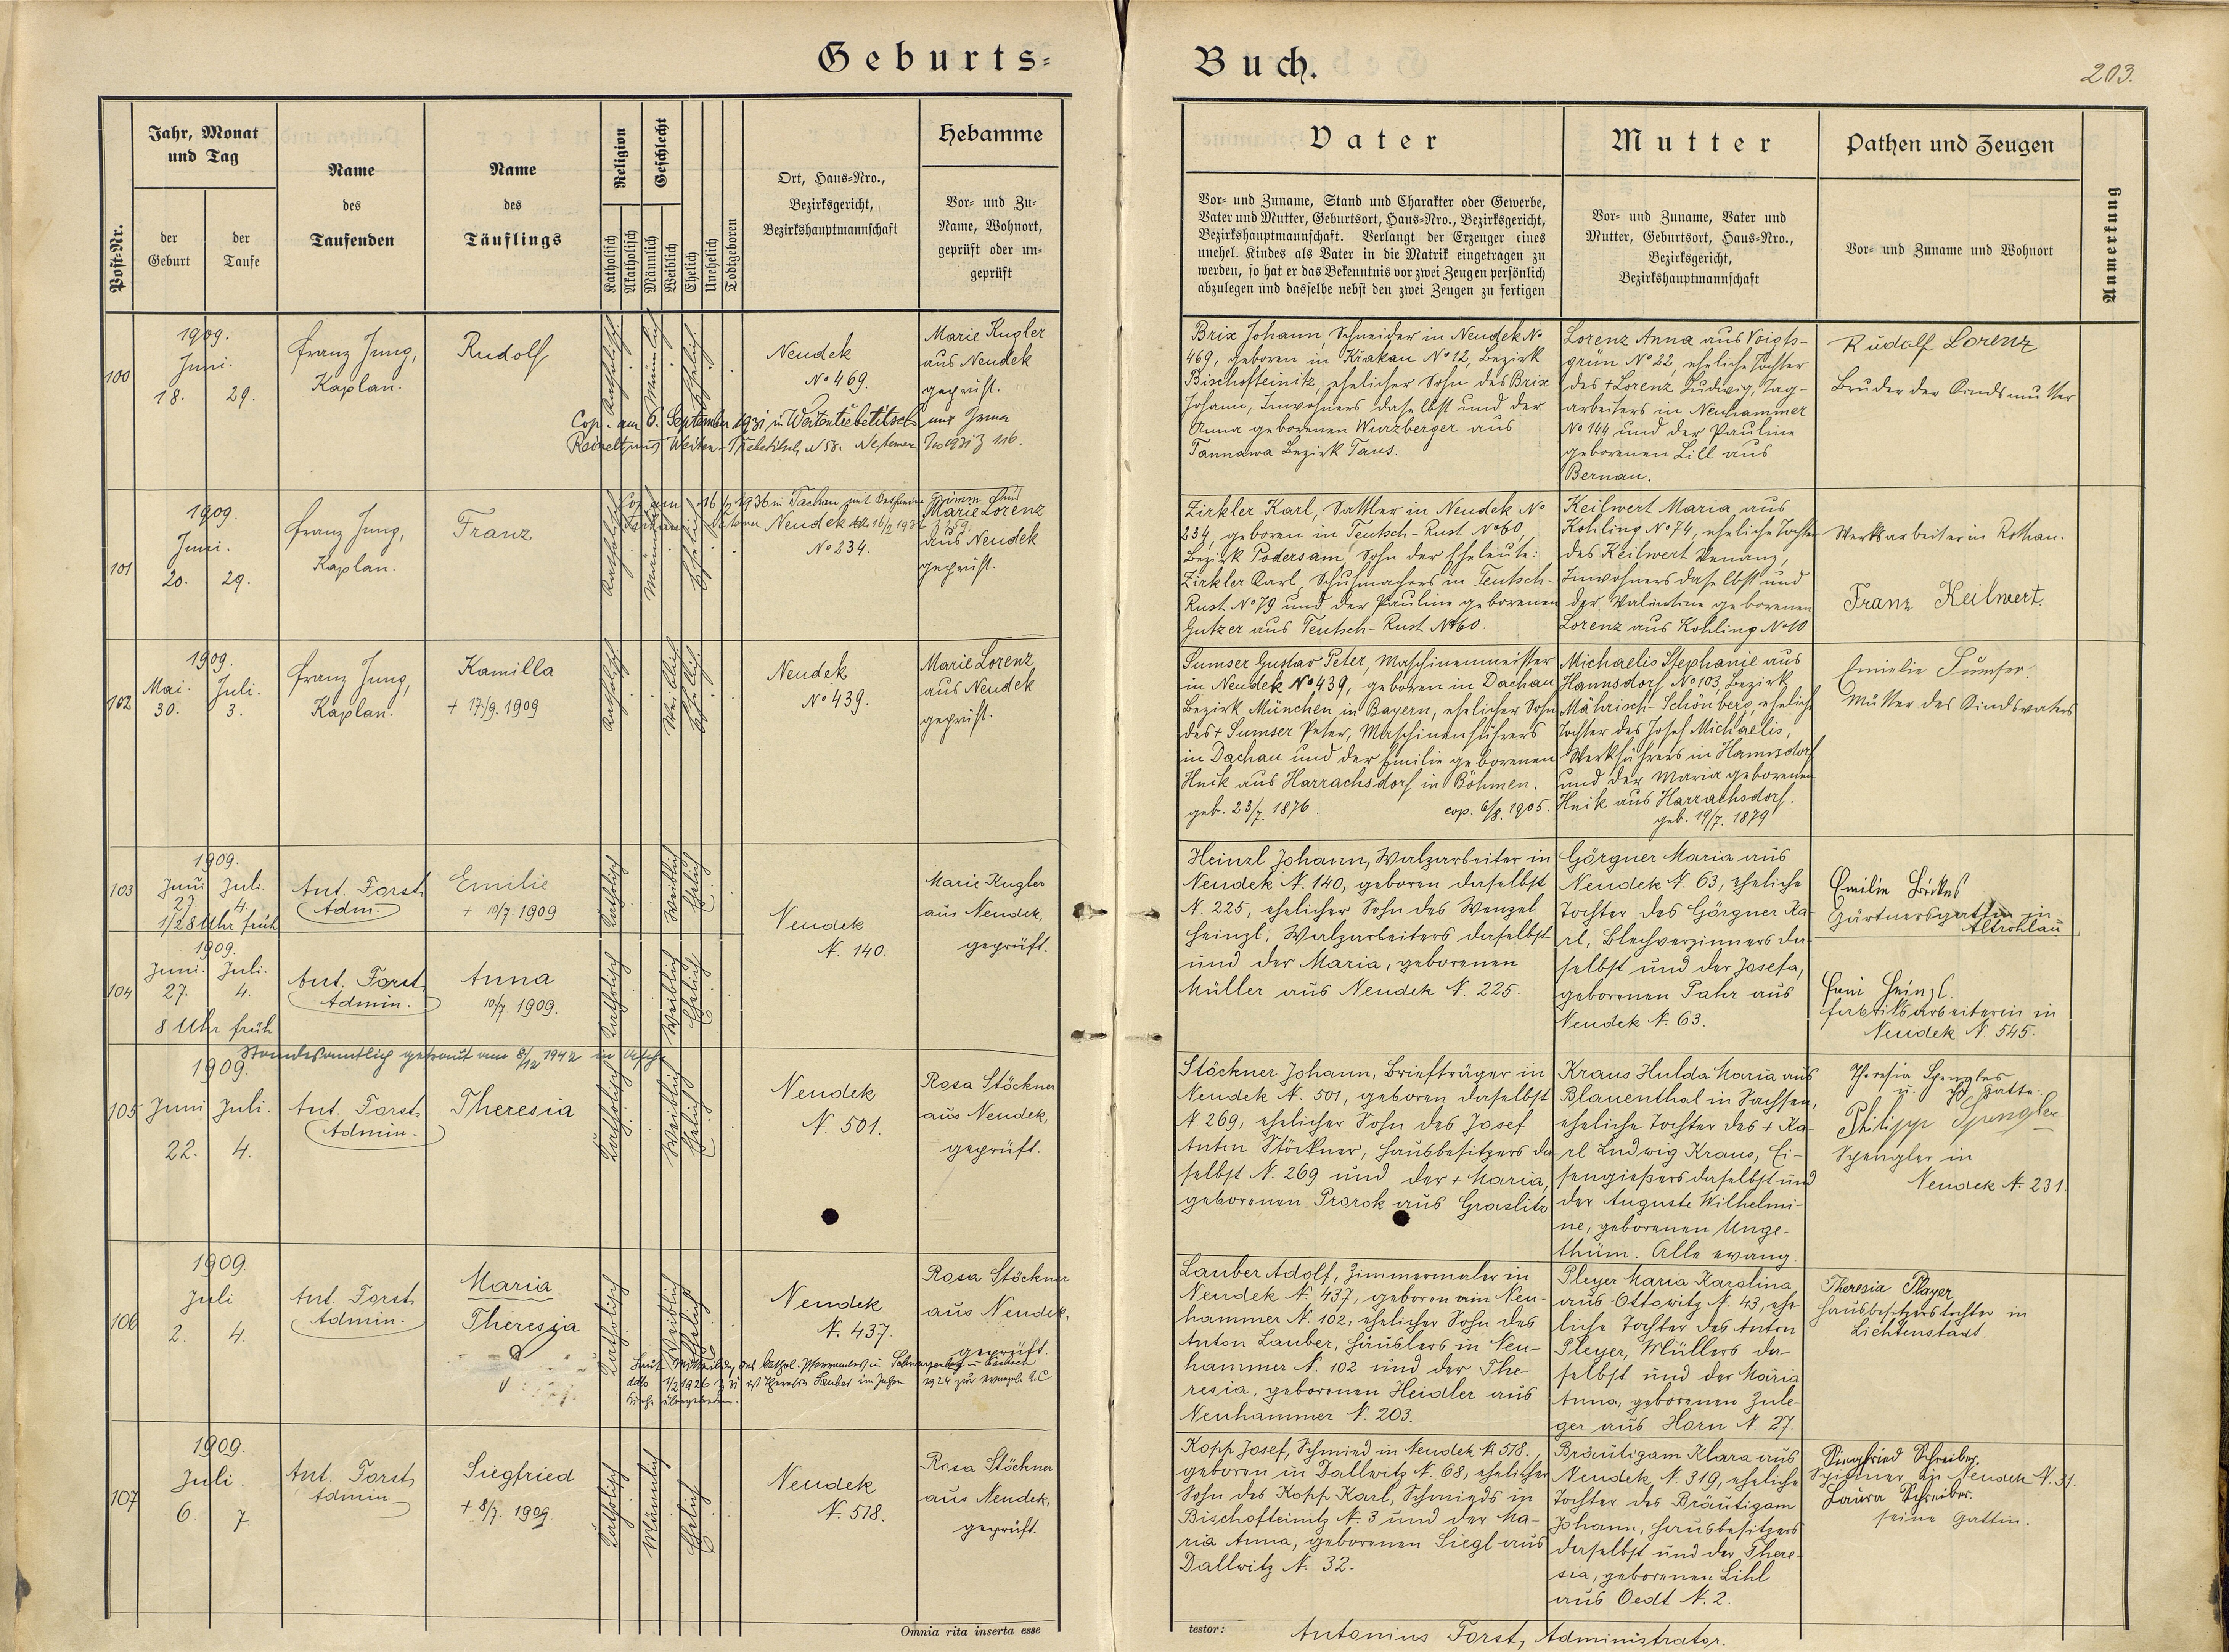 Geburts-
Buch.
203.
Post-Nr.
Jahr, Monat
und Tag
der
Geburt
der
Taufe
Name
des
Taufenden
Name
des
Täuflings
Religion
Katholisch
Akatholisch
Geschlecht
Männlich
Weiblich
Ehelich
Unehelich
Todtgeboren
Ort, Haus-Nro.,
Bezirksgericht,
Bezirkshauptmannschaft
Hebamme
Vor- und Zu-
Name, Wohnort,
geprüft oder un-
geprüft
Vater
Vor- und Zuname, Stand und Charakter oder Gewerbe,
Vater und Mutter, Geburtsort, Haus-Nro., Bezirksgericht,
Bezirkshauptmannschaft. Verlangt der Erzeuger eines
unehel. Kindes als Vater in die Matrik eingetragen zu
werden, so hat er das Bekenntnis vor zwei Zeugen persönlich
abzulegen und dasselbe nebst den zwei Zeugen zu fertigen
Mutter
Vor- und Zuname, Vater und
Mutter, Geburtsort, Haus-Nro.,
Bezirksgericht,
Bezirkshauptmannschaft
Pathen und Zeugen
Vor- und Zuname und Wohnort
Anmerkung
100
1909.
Juni.
18. 29.
Franz Jung,
Kaplan.
Rudolf
Katholisch
Männlich
Ehelich
Neudek
No 469.
Marie Kugler
aus Neudek
geprüft.
Cop. am 6. September 1931 in Weitentrebetitsch mit Irma
Reinelt aus Weiten-Trebetitsch N 58.
Brix Johann, Schneider in Neudek No
469, geboren in Krakau No 12, Bezirk
Bischofteinitz, ehelicher Sohn des Brix
Johann, Inwohners daselbst und der
Anna geborenen Wurzberger aus
Tannawa Bezirk Taus.
Lorenz Anna aus Voigts-
grün No 22, eheliche Tochter
des + Lorenz Ludwig, Tag-
arbeiters in Neuhammer
No 144 und der Pauline
geborenen Lill aus
Bernau.
Rudolf Lorenz
Bruder der Kindsmutter
101
1909.
Juni.
20. 29.
Franz Jung,
Kaplan.
Franz
Katholisch
Männlich
Ehelich
1936 in Tachau mit
Neudek
No 234.
Marie Lorenz
aus Neudek
geprüft.
Zirkler Karl, Sattler in Neudek No
234, geboren in Teutsch-Rust No 60,
Bezirk Podersam, Sohn der Eheleute:
Zirkler Karl, Schuhmachers in Teutsch-
Rust No 79 und der Pauline geborenen
Gutzer aus Teutsch-Rust No 60.
Keilwert Maria aus
Kohling No 74, eheliche Tochter
des Keilwert Venanz,
Inwohners daselbst und
der Valentine geborenen
Lorenz aus Kohling No 10
Werksarbeiter in Rothau.
Franz Keilwert.
102
1909.
Mai. Juli.
30. 3.
Franz Jung,
Kaplan.
Kamilla
+ 17/9. 1909
Katholisch
Weiblich
Ehelich
Neudek
No 439.
Marie Lorenz
aus Neudek
geprüft.
Sumser Gustav Peter, Maschinenmeister
in Neudek No 439, geboren in Dachau
Bezirk München in Bayern, ehelicher Sohn
des + Sumser Peter, Maschinenführers
in Dachau und der Emilie geborenen
Hnik aus Harrachsdorf in Böhmen.
geb. 23/7. 1876. cop. 6/8. 1905.
Michaelis Stephanie aus
Hannsdorf No 103, Bezirk
Mährisch-Schönberg, eheliche
Tochter des Josef Michaelis,
Werkführers in Hannsdorf
und der Maria geborenen
Hnik aus Harrachsdorf.
geb. 19/7. 1879
Emielie Sumser.
Mutter des Kindsvaters
103
1909.
Juni Juli.
27. 4.
1/2 8 Uhr früh
Ant. Forst,
Adm.
Emilie
+ 10/7. 1909
Katholisch
Weiblich
Ehelich
Neudek
N. 140.
Marie Kugler
aus Neudek,
geprüft.
Heinzl Johann, Walzarbeiter in
Neudek N. 140, geboren daselbst
N. 225, ehelicher Sohn des Wenzel
Heinzl, Walzarbeiters daselbst
und der Maria, geborenen
Müller aus Neudek N. 225.
Görgner Maria aus
Neudek N. 63, eheliche
Tochter des Görgner Ka-
rl, Blechverzinners da-
selbst und der Josefa,
geborenen Pahr aus
Neudek N. 63.
Emilie
Gärtnersgattin in
Altrohlau
104
1909.
Juni. Juli.
27. 4.
8 Uhr früh
Ant. Forst,
Admin.
Anna
10/7. 1909.
Katholisch
Weiblich
Ehelich
Fani Heinzl.
Fabriksarbeiterin in
Neudek N. 545.
105
Standesamtlich getraut am 8/12 1942 in Asch
1909.
Juni Juli.
22. 4.
Ant. Forst,
Admin.
Theresia
Katholisch
Weiblich
Ehelich
Neudek
N. 501.
Rosa Stöckner
aus Neudek,
geprüft.
Stöckner Johann, Briefträger in
Neudek N. 501, geboren daselbst
N. 269, ehelicher Sohn des Josef
Anton Stöckner, Hausbesitzers da-
selbst N. 269 und der + Maria,
geborenen Prorok aus Graslitz
Kraus Hulda Maria aus
Blauenthal in Sachsen,
eheliche Tochter des + Ka-
rl Ludwig Kraus, Ei-
sengießers daselbst und
der Auguste Wilhelmi-
ne, geborenen Unge-
thüm. Alle evang.
Theresia Spengler
u. Gatte:
Philipp Spengler
Spengler in
Neudek N. 231.
106
1909.
Juli
2. 4.
Ant. Forst,
Admin.
Maria
Theresia
Katholisch
Weiblich
Ehelich
Neudek
N. 437.
Rosa Stöckner
aus Neudek,
geprüft.
Laut Mitteilung des kathol. Pfarramtes in
1926 Theresia Lauber im Jahre 1924 zur evangel. A.C
Kirche übergetreten.
Lauber Adolf, Zimmermaler in
Neudek N. 437, geboren in Neu-
hammer N. 102, ehelicher Sohn des
Anton Lauber, Häuslers in Neu-
hammer N. 102 und der The-
resia, geborenen Heidler aus
Neuhammer N. 203.
Pleyer Maria Karolina
aus Ottowitz N. 43, ehe-
liche Tochter des Anton
Pleyer, Müllers da-
selbst und der Maria
Anna, geborenen Zule-
ger aus Horn N. 27.
Theresia Player
Hausbesitzerstochter in
Lichtenstadt.
107
1909.
Juli.
6. 7.
Ant. Forst,
Admin
Siegfried
+ 8/7. 1909.
Katholisch
Männlich
Ehelich
Neudek
N. 518.
Rosa Stöckner
aus Neudek,
geprüft.
Kopp Josef, Schmied in Neudek N. 518.
geboren in Dallwitz N. 68, ehelicher
Sohn des Kopp Karl, Schmieds in
Bischofteinitz N. 3 und der Ma-
ria Anna, geborenen Siegl aus
Dallwitz N. 32.
Bräutigam Klara aus
Neudek, N. 319, eheliche
Tochter des Bräutigam
Johann, Hausbesitzers
daselbst und der There-
sia, geborenen Lihl
aus Oedt N. 2.
Siegfried Schreiber.
Spinner in Neudek N. 31.
Laura Schreiber.
seine Gattin.
Omnia rita inserta esse
testor: Antonius Forst, Administrator.